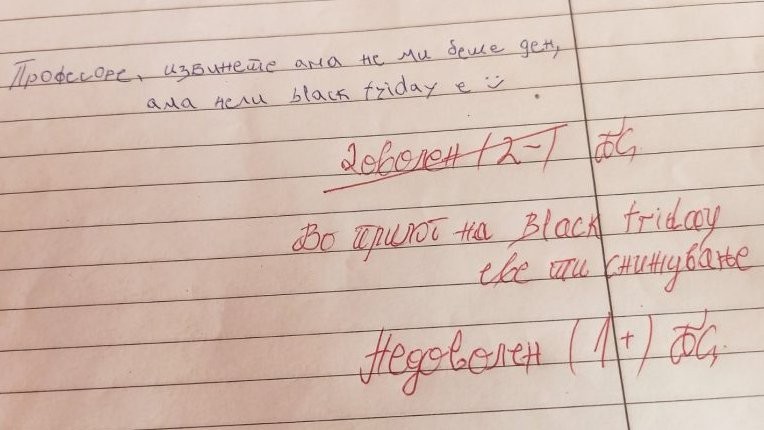 Професоре, извинете ама не ми беше ден,
ама нели black friday е :)
Доволен (2-)
Во прилог на Black friday
еве ти снижување
Недоволен (1+)